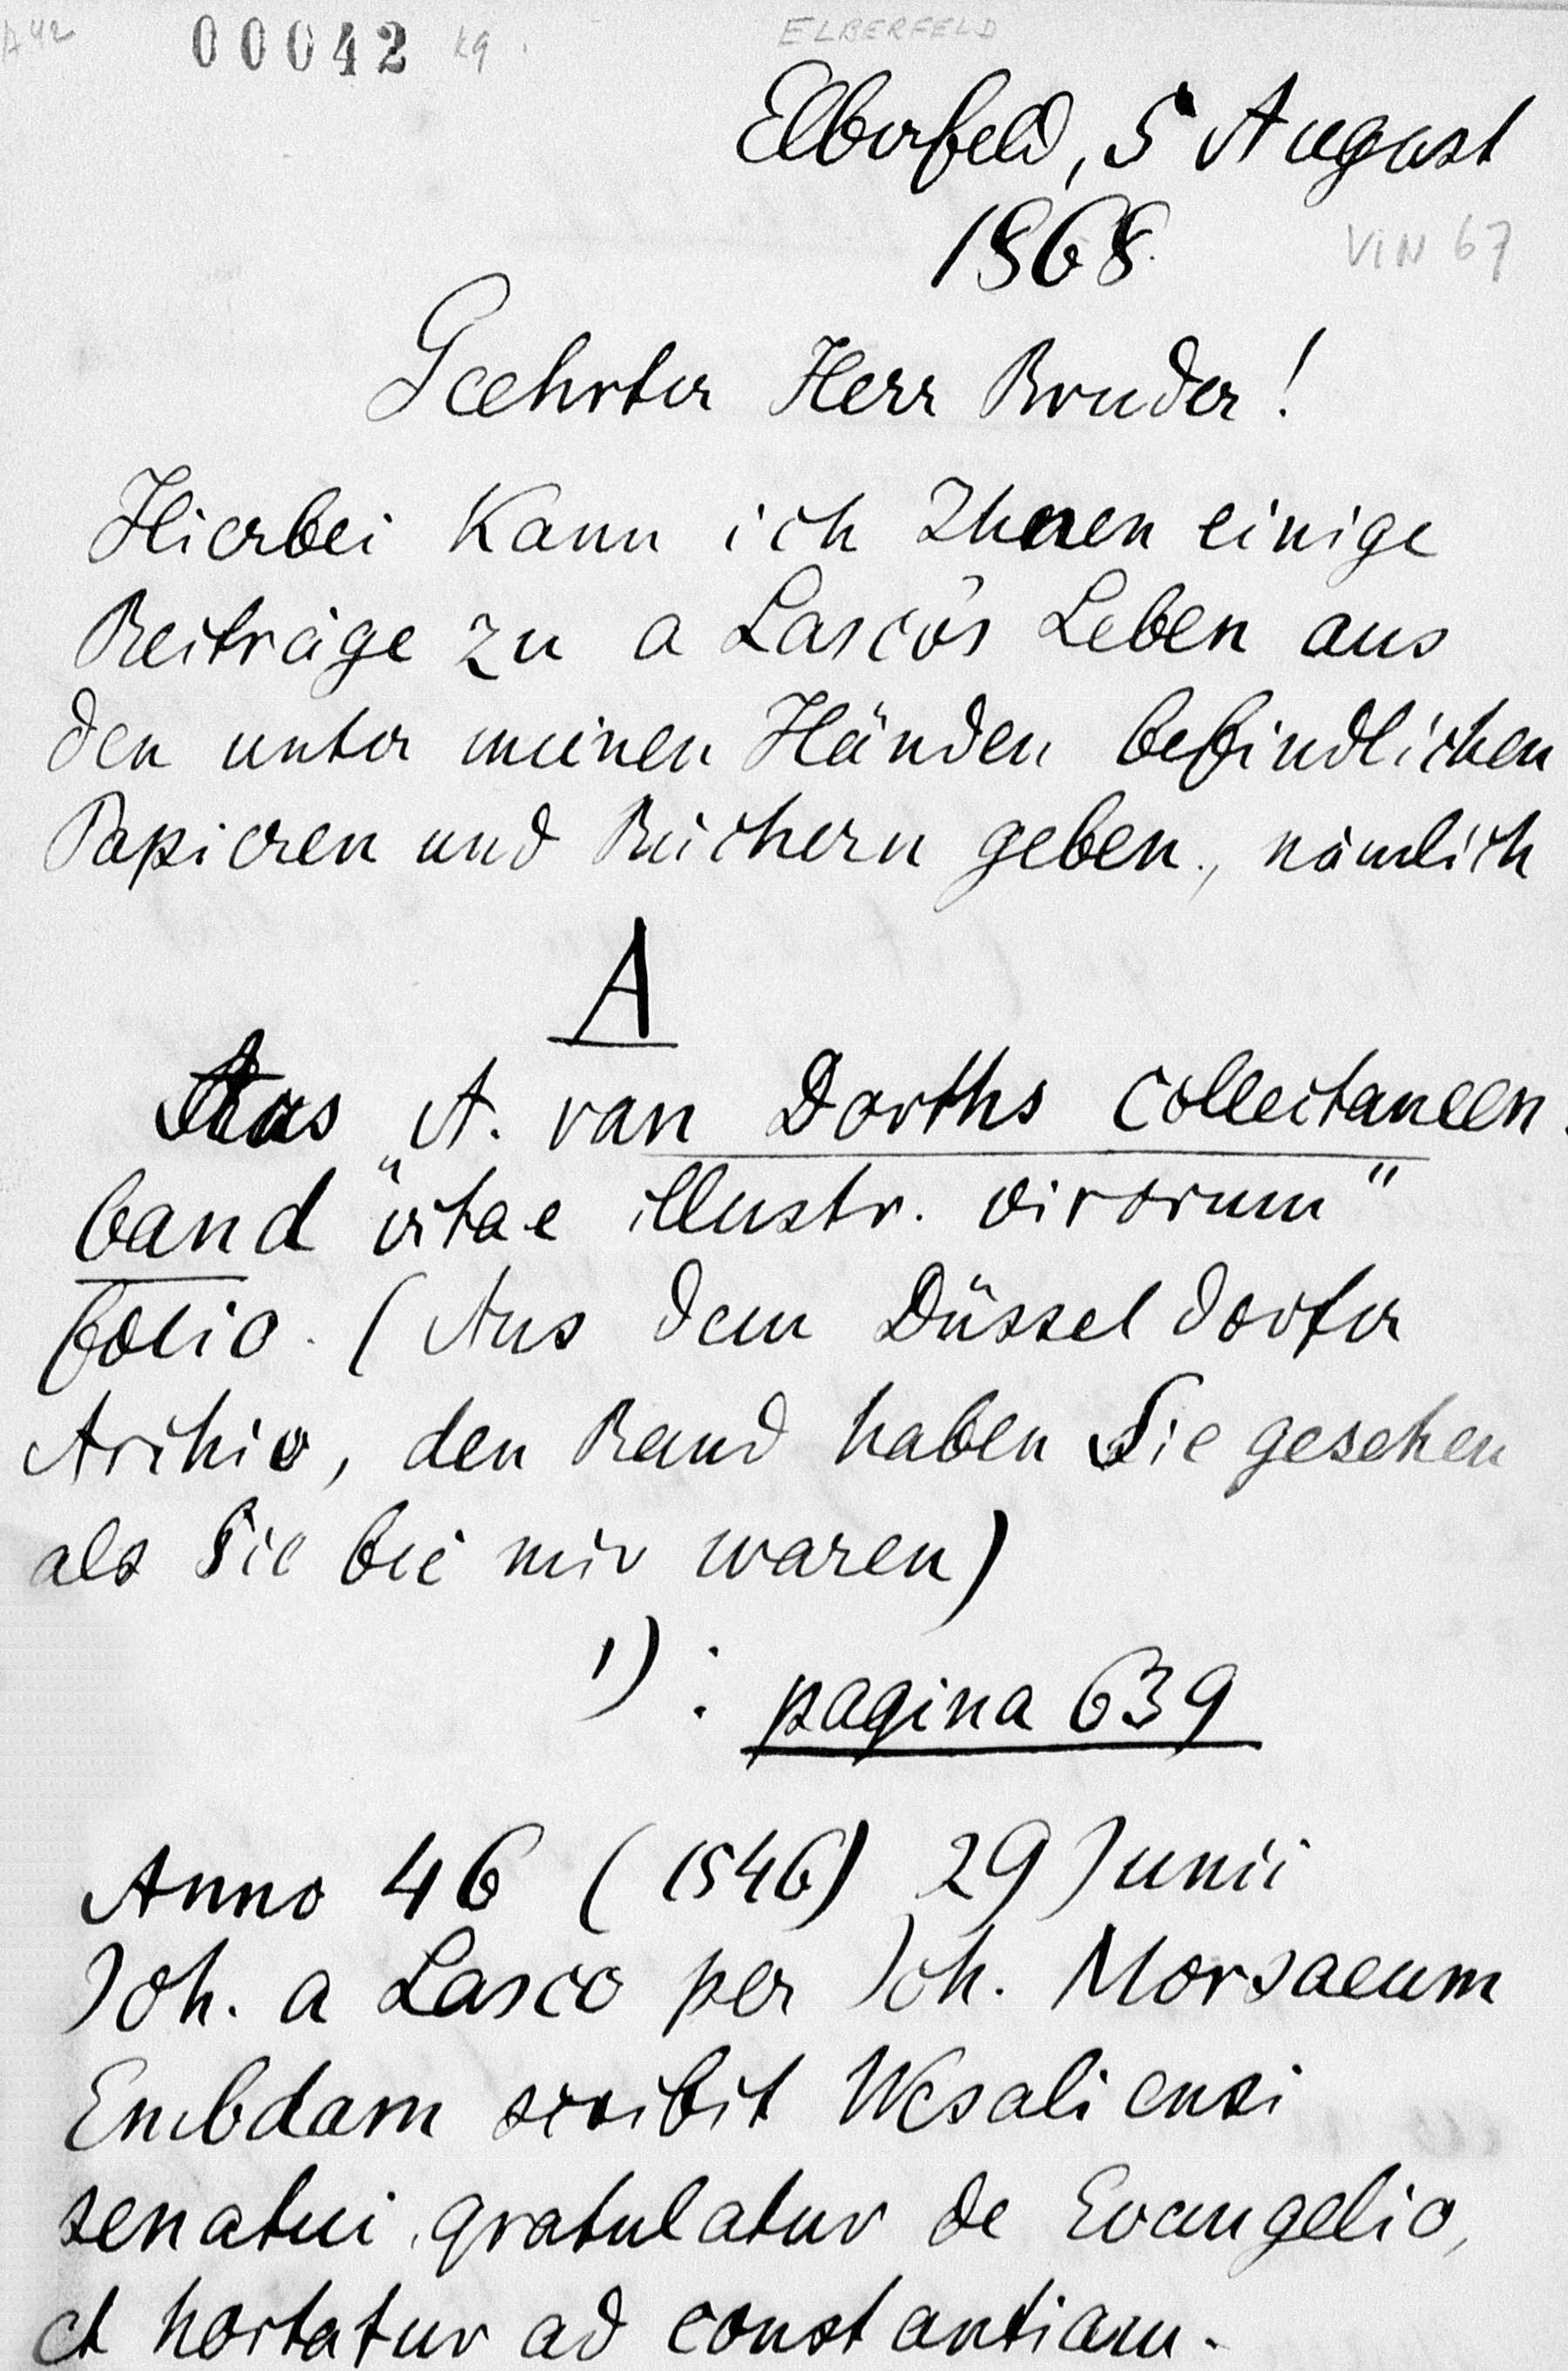 A 42 00042 kg. ELBERFELD
Elberfeld, 5 August
1868.
VIN 67
Geehrter Herr Bruder!
Hierbei kann ich Ihnen einige
Beiträge zu a Lasco's Leben aus
den unter meinen Händen befindlichen
Papieren und Büchern geben., nämlich
A
Aus A. van Dorths Collectaneen-
band "vitae illustr. virorum"
folio. (Aus dem Düsseldorfer
Archiv, den Band haben Sie gesehen
als Sie bei mir waren)
1) : pagina 639
Anno 46 (1546) 29 Junii
Joh. a Lasco per Joh. Morsaeum
Embdam scribit Wesaliensi
senatui gratulatur de Evangelio,
et hortatur ad constantiam.